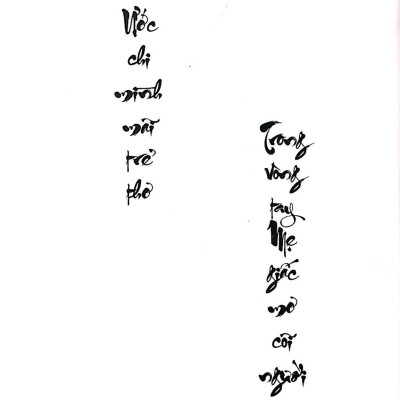 Ước
chi
mình
mãi
trẻ
thơ
Trong
vòng
tay
Mẹ
giấc
mơ
cõi
người